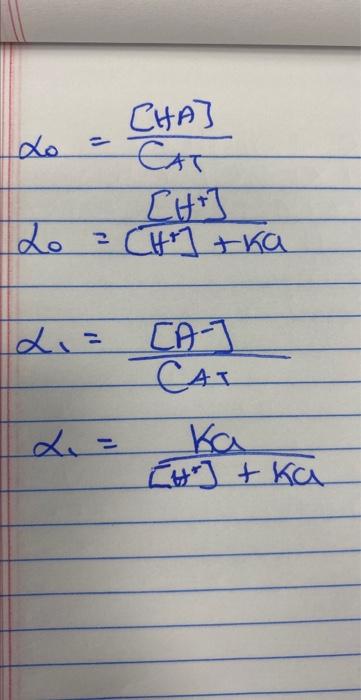 α₀ = [HA] / C_AT
α₀ = [H⁺] / [H⁺] + Ka
α₁ = [A⁻] / C_AT
α₁ = Ka / [H⁺] + Ka